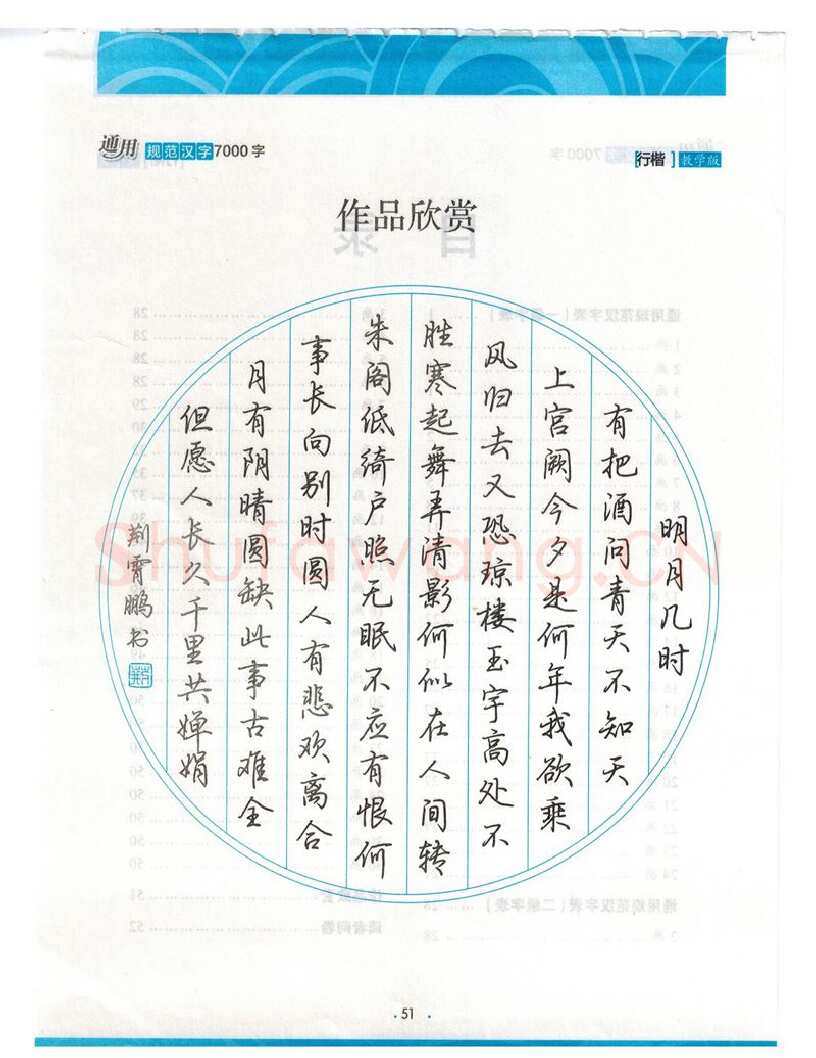 通用 规范汉字7000字
[行楷] 教学版
作品欣赏
明月几时
有把酒问青天不知天
上宫阙今夕是何年我欲乘
风归去又恐琼楼玉宇高处不
胜寒起舞弄清影何似在人间转
朱阁低绮户照无眠不应有恨何
事长向别时圆人有悲欢离合
月有阴晴圆缺此事古难全
但愿人长久千里共婵娟
荆霄鹏书
Shufawang.CN
· 51 ·